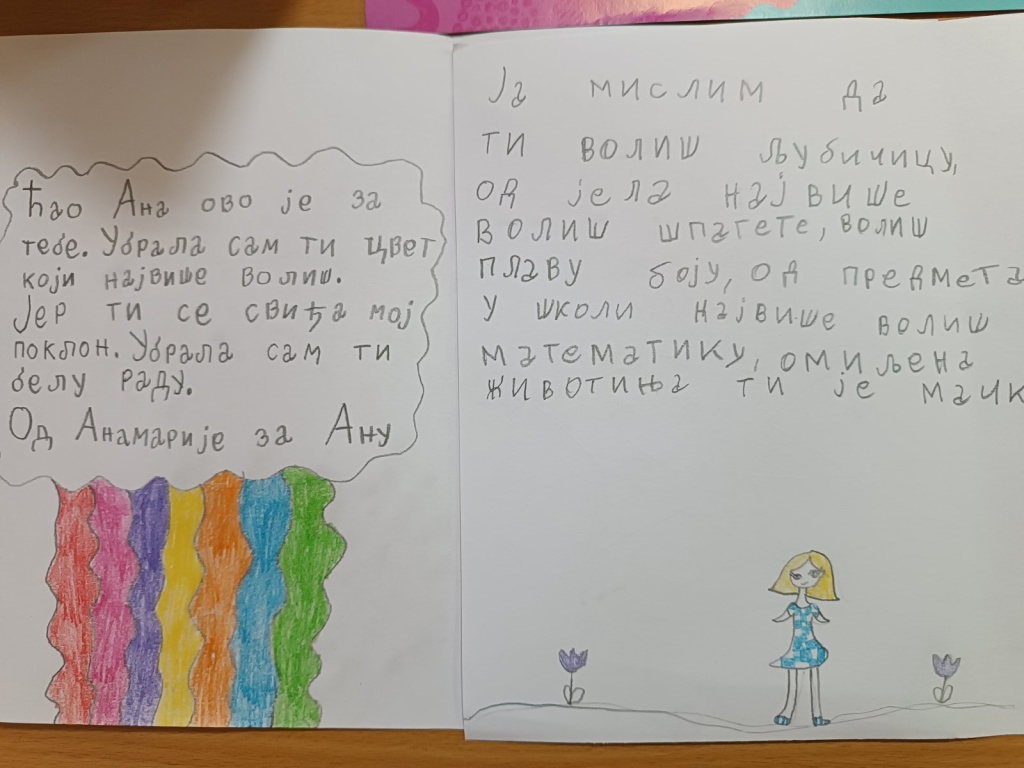 Ћао Ана ово је за
тебе. Убрала сам ти цвет
који највише волиш.
Јер ти се свиђа мој
поклон. Убрала сам ти
белу раду.
Од Анамарије за Ану
Ја мислим да
ти волиш љубичицу,
од јела највише
волиш шпагете, волиш
плаву боју, од предмета
у школи највише волиш
математику, омиљена
животиња ти је